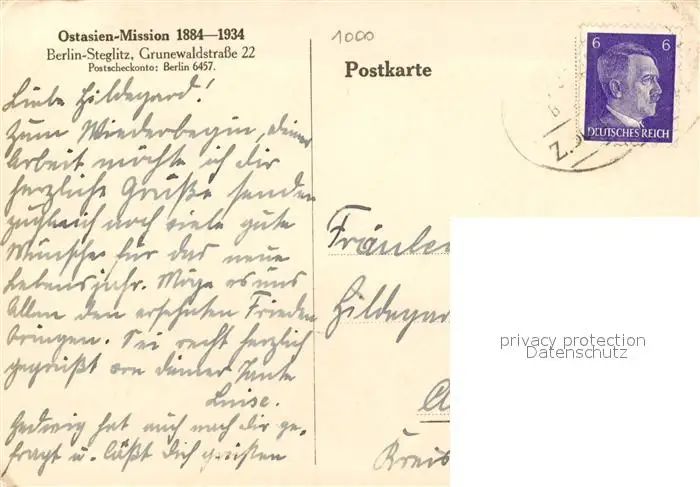 Ostasien-Mission 1884—1934
Berlin-Steglitz, Grunewaldstraße 22
Postscheckonto: Berlin 6457.
Liebe Hildegard!
Zum Wiederbeginn deiner
Arbeit möchte ich dir
herzliche Grüße senden
zugleich noch viele gute
Wünsche für das neue
Lebensjahr. Möge es uns
Allen den ersehnten Frieden
bringen. Sei recht herzlich
gegrüßt von deiner Tante
Luise.
Hedwig hat auch nach dir ge-
fragt u. läßt dich grüßen
1000
Postkarte
6 6
DEUTSCHES REICH
Fräulein
Hildegard
Kreis
privacy protection
Datenschutz